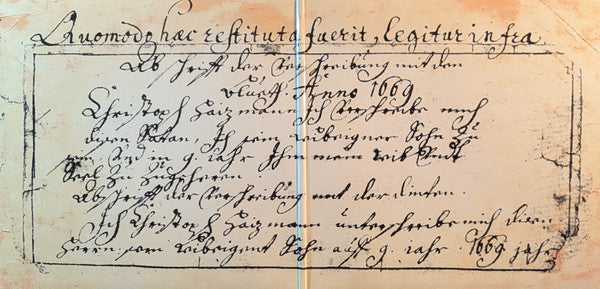 Quomodo hæc restituta fuerit, legitur infra
Abschrifft der Verschreibung mit dem
bluett. Anno 1669
Christoph Haizmann ich verschreibe mich
disen Satan, Ich sein leibeigner Sohn zu
sein, Und in 9. iahr Ihm mein leib Undt
Seel zu zugeheren
Abschrifft der Verschreibung mit der dinten.
Ich Christoph Haizmann unterschreibe mich disen
Herrn sein leibeigent Sohn auff 9. iahr. 1669 jahr